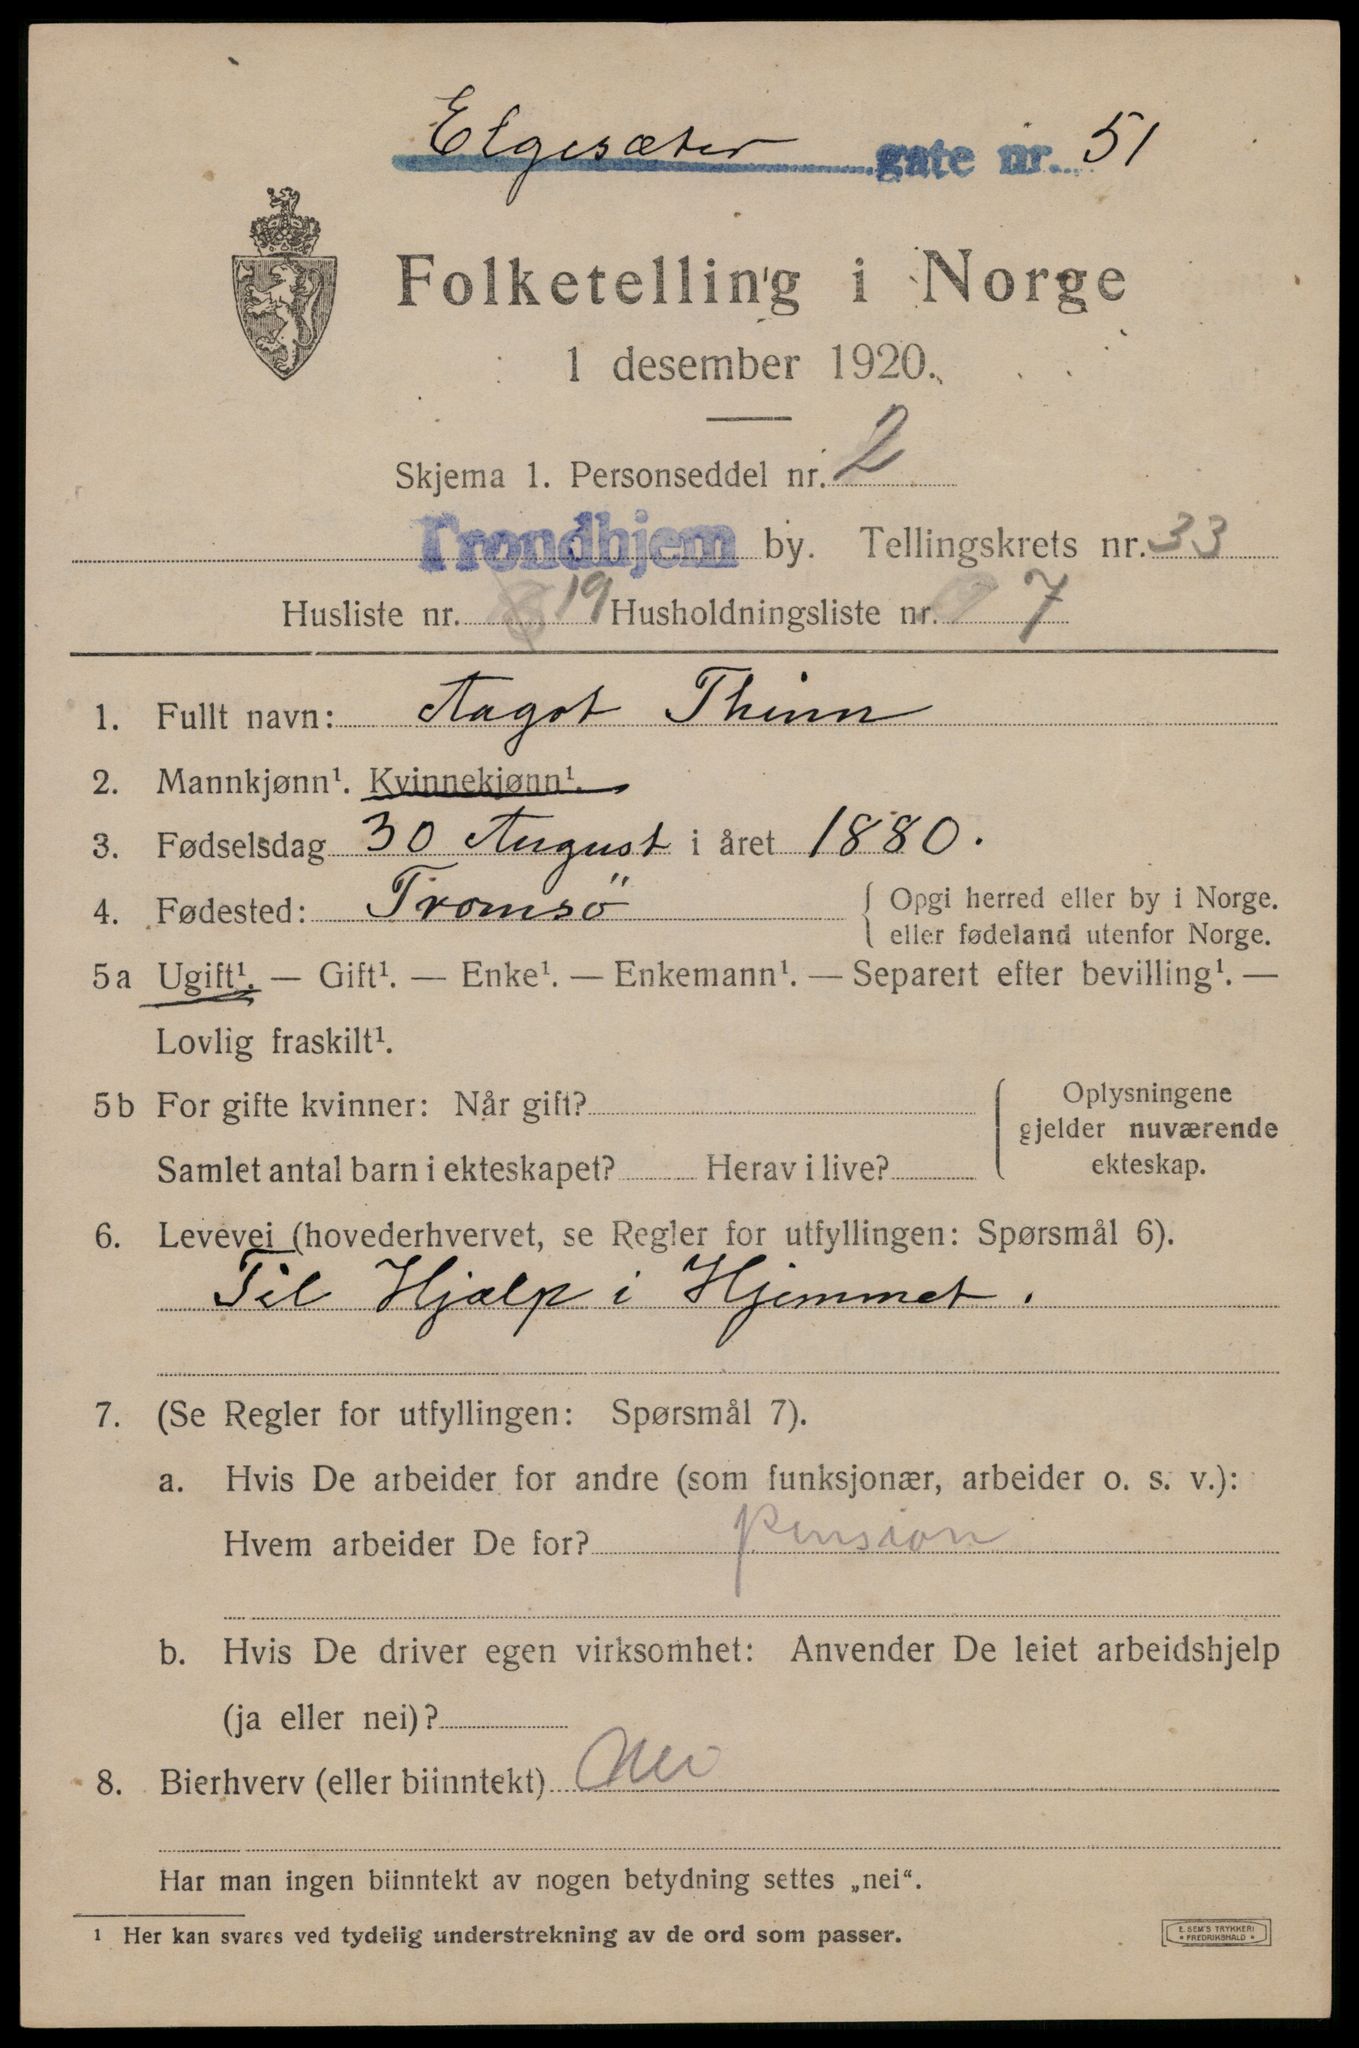 Elgesæter gate nr. 51
Folketelling i Norge
1 desember 1920.
Skjema 1. Personseddel nr. 2
Trondhjem by. Tellingskrets nr. 33
Husliste nr. 19 Husholdningsliste nr. 7
1. Fullt navn: Aagot Thinn
2. Mannkjønn¹. Kvinnekjønn¹.
3. Fødselsdag 30 August i året 1880.
4. Fødested: Tromsö { Opgi herred eller by i Norge.
eller fødeland utenfor Norge.
5a Ugift¹. — Gift¹. — Enke¹. — Enkemann¹. — Separert efter bevilling¹. —
Lovlig fraskilt¹.
5b For gifte kvinner: Når gift?
Samlet antal barn i ekteskapet? Herav i live?
Oplysningene
gjelder nuværende
ekteskap.
6. Levevei (hovederhvervet, se Regler for utfyllingen: Spørsmål 6).
Til Hjælp i Hjemmet.
7. (Se Regler for utfyllingen: Spørsmål 7).
a. Hvis De arbeider for andre (som funksjonær, arbeider o. s. v.):
Hvem arbeider De for? pension
b. Hvis De driver egen virksomhet: Anvender De leiet arbeidshjelp
(ja eller nei)?
8. Bierhverv (eller biinntekt) Nei
Har man ingen biinntekt av nogen betydning settes „nei“.
¹ Her kan svares ved tydelig understrekning av de ord som passer.
E. SEM'S TRYKKERI
* FREDRIKSHALD *